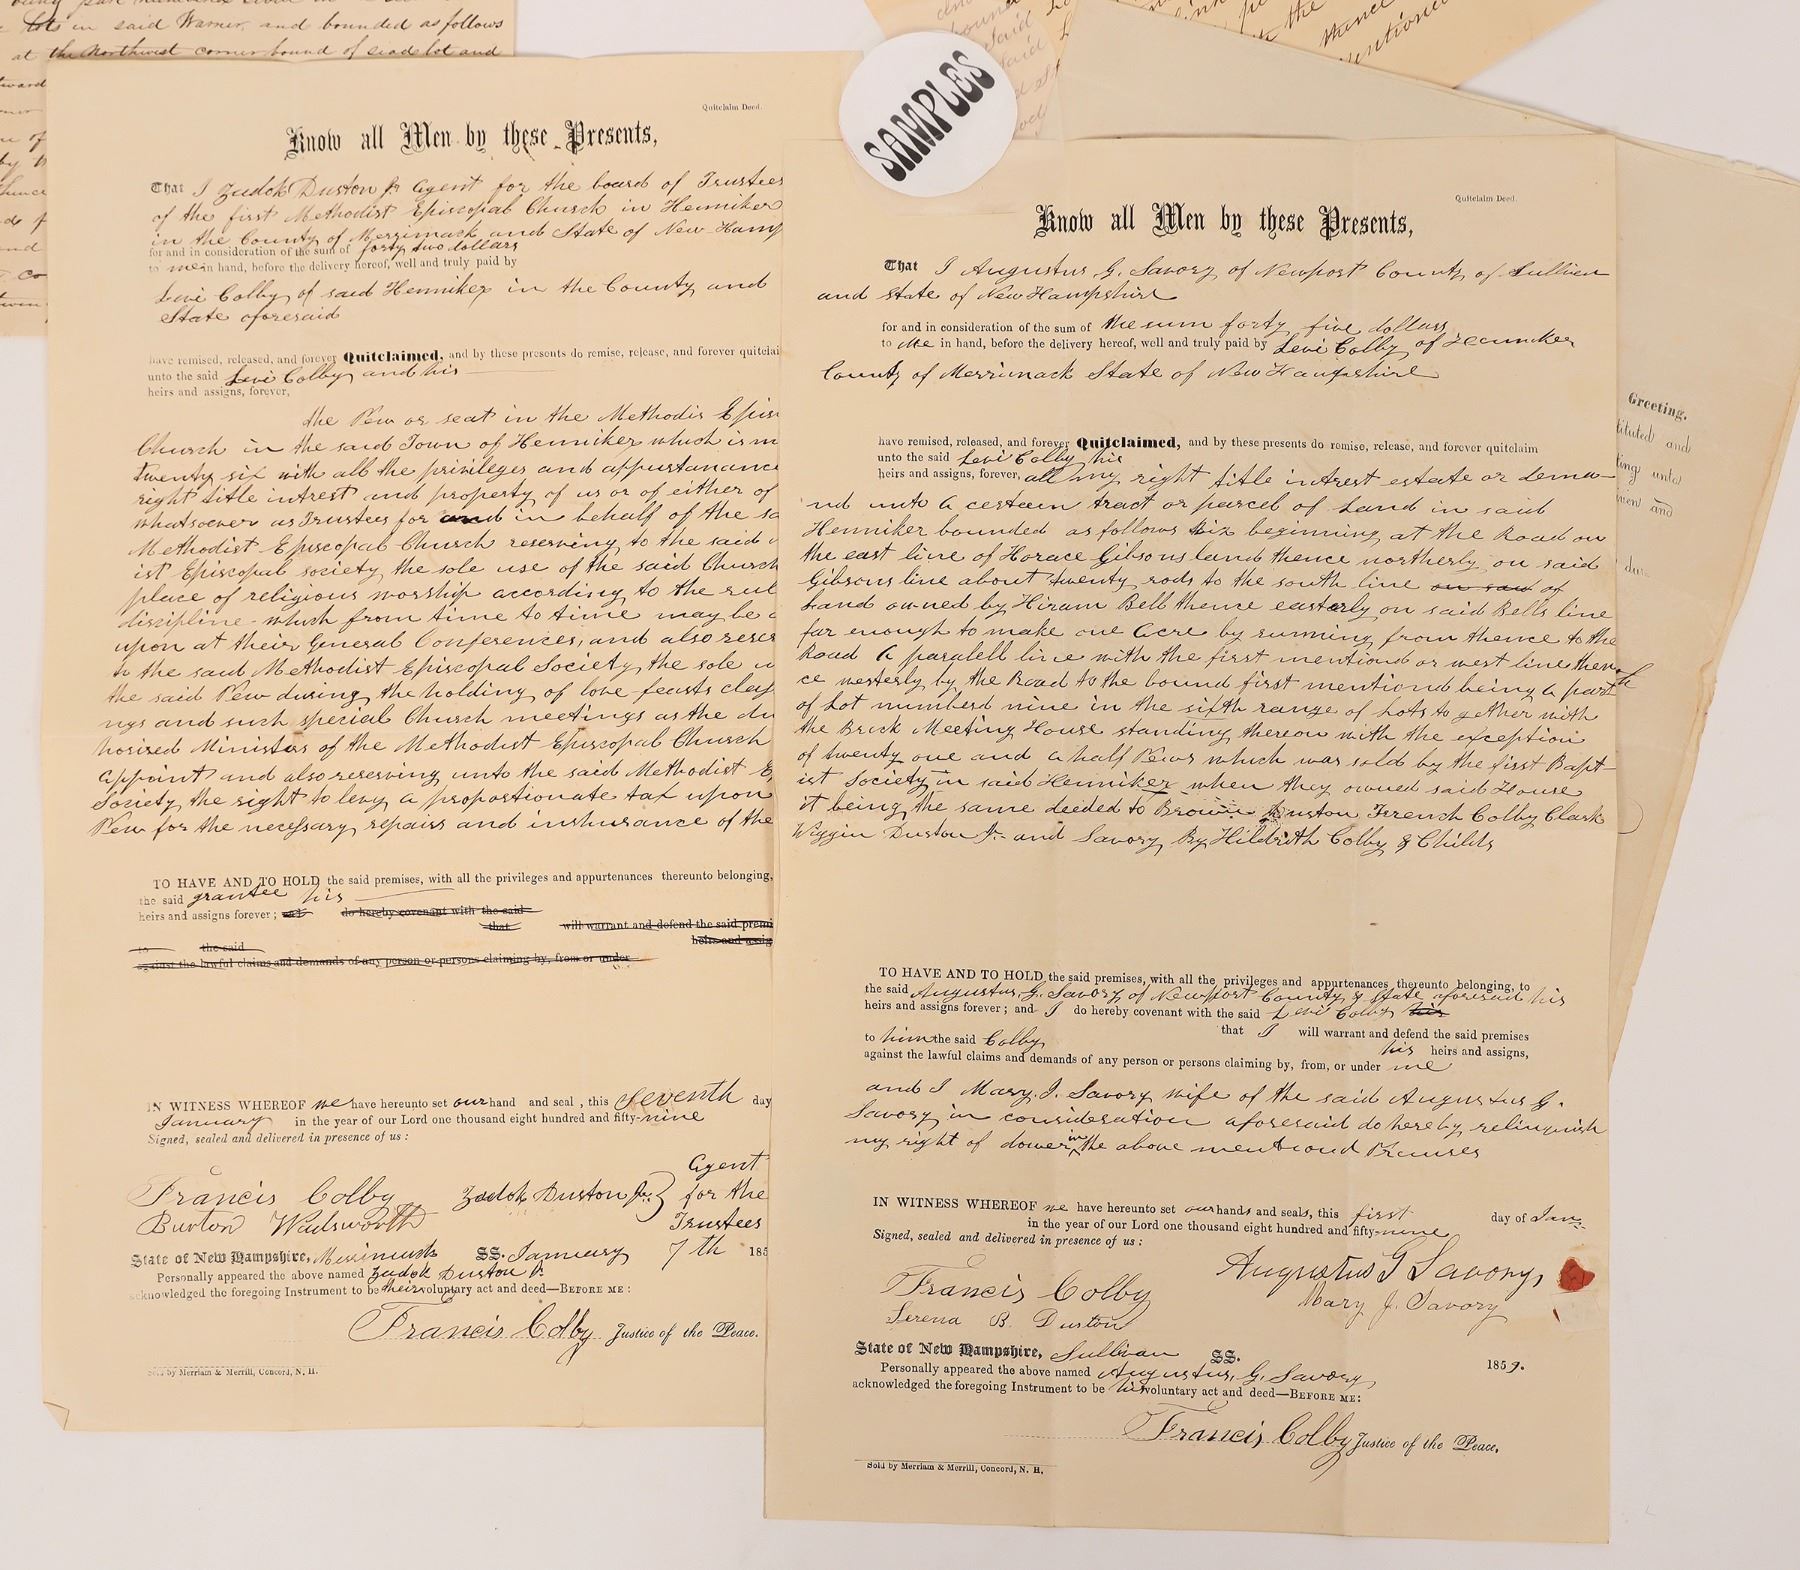 lots in said Warner, and bounded as follows
at the Northwest corner bound of said lot and
SAMPLES
Quitclaim Deed.
Know all Men by these Presents,
That I Zadok Duston Jr Agent for the board of Trustees
of the first Methodist Episcopal Church in Henniker
in the County of Merrimack and State of New Hamp
for and in consideration of the sum of forty two dollars
to me in hand, before the delivery hereof, well and truly paid by
Levi Colby of said Henniker in the County and
State aforesaid
have remised, released, and forever Quitclaimed, and by these presents do remise, release, and forever quitclai
unto the said Levi Colby and his
heirs and assigns, forever,
the Pew or seat in the Methodis Epis
Church in the said Town of Henniker which is
twenty six with all the privileges and appurtanance
right title intrest and property of us or of either of
whatsoever as Trustees for and in behalf of the
Methodist Episcopal Church reserving to the said
ist Episcopal society the sole use of the said Church
place of religious worship according to the rul
discipline which from time to time may be
upon at their General Conferences, and also reser
to the said Methodist Episcopal Society, the sole
the said Pew during the holding of love feasts
ngs and such special Church meetings as the du
horised Ministers of the Methodist Episcopal Church
appoint and also reserving unto the said Methodist E
Society the right to levy a proportionate tax upon
Pew for the necessary repairs and inshurance of the
TO HAVE AND TO HOLD the said premises, with all the privileges and appurtenances thereunto belonging,
the said grantee his
heirs and assigns forever; and do hereby covenant with the said
that will warrant and defend the said premi
to the said heirs and assig
against the lawful claims and demands of any person or persons claiming by, from or under
IN WITNESS WHEREOF we have hereunto set our hand and seal, this Seventh day
January in the year of our Lord one thousand eight hundred and fifty-nine
Signed, sealed and delivered in presence of us:
Francis Colby Zadok Duston Jr. Agent for the Trustees
Burton Wadsworth
State of New Hampshire, Merrimack SS. January 7th 185
Personally appeared the above named Zadok Duston Jr
acknowledged the foregoing Instrument to be their voluntary act and deed—BEFORE ME:
Francis Colby Justice of the Peace.
Sold by Merriam & Merrill, Concord, N. H.
Quitclaim Deed.
Know all Men by these Presents,
That I Augustus G. Savory of Newport County of Sullivan
and State of New Hampshire
for and in consideration of the sum of the sum forty five dollars
to Me in hand, before the delivery hereof, well and truly paid by Levi Colby of Henniker
County of Merrimack State of New Hampshire
have remised, released, and forever Quitclaimed, and by these presents do remise, release, and forever quitclaim
unto the said Levi Colby his
heirs and assigns, forever, all my right title intrest estate or dema-
nd unto a certain tract or parcel of Land in said
Henniker bounded as follows viz beginning at the Road on
the east line of Horace Gibsons land thence northerly on said
Gibsons line about twenty rods to the south line on said of
Land owned by Hiram Bell thence easterly on said Bells line
far enough to make one Acre by running from thence to the
Road a paralell line with the first mentiond or west line then
ce westerly by the Road to the bound first mentioned being a part
of Lot numberd nine in the sixth range of Lots to gether with
the Brick Meeting House standing thereon with the exception
of twenty one and a half Pews which was sold by the first Bapt-
ist Society in said Henniker when they owned said House
it being the same deeded to Brown Duston French Colby Clark
Wiggin Duston Jr. and Savory By Hildreth Colby & Childs
TO HAVE AND TO HOLD the said premises, with all the privileges and appurtenances thereunto belonging, to
the said Augustus, G. Savory of Newport County & State aforesaid his
heirs and assigns forever; and I do hereby covenant with the said Levi Colby his
that I will warrant and defend the said premises
to him the said Colby his heirs and assigns,
against the lawful claims and demands of any person or persons claiming by, from, or under me
and I Mary J. Savory wife of the said Augustus G.
Savory in consideration aforesaid do hereby relinquish
my right of dower in the above mentiond Premises
IN WITNESS WHEREOF we have hereunto set our hands and seals, this first day of Jan.
in the year of our Lord one thousand eight hundred and fifty-nine
Signed, sealed and delivered in presence of us:
Francis Colby Augustus G Savory,
Serena B. Duston Mary J. Savory
State of New Hampshire, Sullivan SS. 1859.
Personally appeared the above named Augustus, G. Savory,
acknowledged the foregoing Instrument to be his voluntary act and deed—BEFORE ME:
Francis Colby Justice of the Peace.
Sold by Merriam & Merrill, Concord, N. H.
the
thence
mentioned
Greeting.
tituted and
ting unto